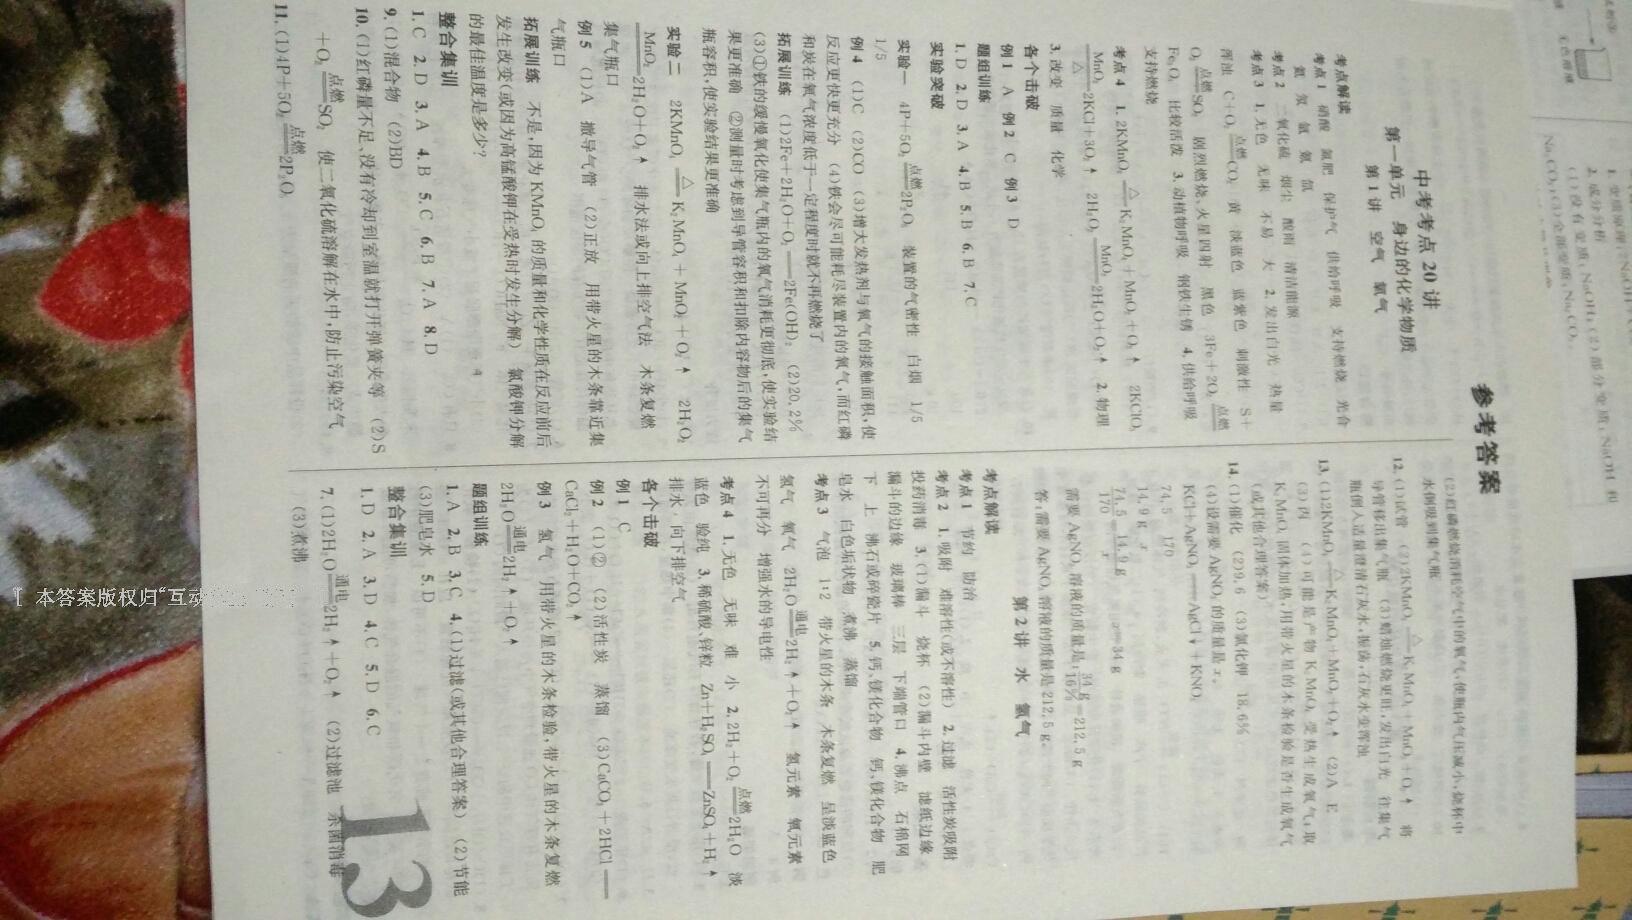 参考答案
中考考点 20 讲
第一单元 身边的化学物质
第 1 讲 空气 氧气
考点解读
考点 1 硝酸 氮肥 保护气 供给呼吸 支持燃烧 光合
氦 氖 氩 氪 氙
考点 2 二氧化硫 烟尘 酸雨 清洁能源
考点 3 1. 无色 无味 不易 大 2. 发出白光 热量
浑浊 C+O₂ 点燃 CO₂ 黄 淡蓝色 蓝紫色 刺激性 S+
O₂ 点燃 SO₂ 剧烈燃烧、火星四射 黑色 3Fe+2O₂ 点燃
Fe₃O₄ 比较活泼 3. 动植物呼吸 钢铁生锈 4. 供给呼吸
支持燃烧
考点 4 1. 2KMnO₄ △ K₂MnO₄+MnO₂+O₂↑ 2KClO₃
MnO₂ △ 2KCl+3O₂↑ 2H₂O₂ MnO₂ 2H₂O+O₂↑ 2. 物理
3. 改变 质量 化学
各个击破
例 1 A 例 2 C 例 3 D
题组训练
1. D 2. D 3. A 4. B 5. B 6. B 7. C
实验突破
实验一 4P+5O₂ 点燃 2P₂O₅ 装置的气密性 白烟 1/5
1/5
例 4 (1)C (2)CO (3)增大发热剂与氧气的接触面积,使
反应更快更充分 (4)铁会尽可能耗尽装置内的氧气,而红磷
和炭在氧气浓度低于一定程度时就不再燃烧了
拓展训练 (1)2Fe+2H₂O+O₂══2Fe(OH)₂ (2)20.2%
(3)①铁的缓慢氧化使集气瓶内的氧气消耗更彻底,使实验结
果更准确 ②测量时考虑到导管容积和扣除内容物后的集气
瓶容积,使实验结果更准确
实验二 2KMnO₄ △ K₂MnO₄+MnO₂+O₂↑ 2H₂O₂
MnO₂ 2H₂O+O₂↑ 排水法或向上排空气法 木条复燃
集气瓶口
例 5 (1)A 撤导气管 (2)正放 用带火星的木条靠近集
气瓶口
拓展训练 不是,因为 KMnO₄ 的质量和化学性质在反应前后
发生改变(或因为高锰酸钾在受热时发生分解) 氯酸钾分解
的最佳温度是多少?
整合集训
1. C 2. D 3. A 4. B 5. C 6. B 7. A 8. D
9. (1)混合物 (2)BD
10. (1)红磷量不足、没有冷却到室温就打开弹簧夹等 (2)S
+O₂ 点燃 SO₂ 使二氧化硫溶解在水中,防止污染空气
11. (1)4P+5O₂ 点燃 2P₂O₅
(2)红磷燃烧消耗空气中的氧气,使瓶内气压减小,烧杯中
水倒吸到集气瓶
12. (1)试管 (2)2KMnO₄ △ K₂MnO₄+MnO₂+O₂↑ 将
导管移出集气瓶 (3)蜡烛燃烧更旺,发出白光 往集气
瓶倒入适量澄清石灰水,振荡,石灰水变浑浊
13. (1)2KMnO₄ △ K₂MnO₄+MnO₂+O₂↑ (2)A E
(3)丙 (4)可能是产物 K₂MnO₄ 受热生成氧气;取
K₂MnO₄ 固体加热,用带火星的木条检验是否生成氧气
(或其他合理答案)
14. (1)催化 (2)9.6 (3)氯化钾 18.6%
(4)设需要 AgNO₃ 的质量是 x。
KCl+AgNO₃══AgCl↓+KNO₃
74.5 170
14.9 g x
74.5/170=14.9 g/x x=34 g
需要 AgNO₃ 溶液的质量是:34 g/16%=212.5 g
答:需要 AgNO₃ 溶液的质量是 212.5 g。
第 2 讲 水 氢气
考点解读
考点 1 节约 防治
考点 2 1. 吸附 难溶性(或不溶性) 2. 过滤 活性炭吸附
投药消毒 3. (1)漏斗 烧杯 (2)漏斗内壁 滤纸边缘
漏斗的边缘 玻璃棒 三层 下端管口 4. 沸点 石棉网
下 上 沸石或碎瓷片 5. 钙、镁化合物 钙、镁化合物 肥
皂水 白色垢状物 煮沸 蒸馏
考点 3 气泡 1:2 带火星的木条 木条复燃 呈淡蓝色
氢气 氧气 2H₂O 通电 2H₂↑+O₂↑ 氢元素 氧元素
不可再分 增强水的导电性
考点 4 1. 无色 无味 难 小 2. 2H₂+O₂ 点燃 2H₂O 淡
蓝色 验纯 3. 稀硫酸、锌粒 Zn+H₂SO₄══ZnSO₄+H₂↑
排水、向下排空气
各个击破
例 1 C
例 2 (1)② (2)活性炭 蒸馏 (3)CaCO₃+2HCl══
CaCl₂+H₂O+CO₂↑
例 3 氢气 用带火星的木条检验,带火星的木条复燃
2H₂O 通电 2H₂↑+O₂↑
题组训练
1. A 2. B 3. C 4. (1)过滤(或其他合理答案) (2)节能
(3)肥皂水 5. D
整合集训
1. D 2. A 3. D 4. C 5. D 6. C
7. (1)2H₂O 通电 2H₂↑+O₂↑ (2)过滤池 杀菌消毒
(3)煮沸
[ 本答案版权归“互动
13